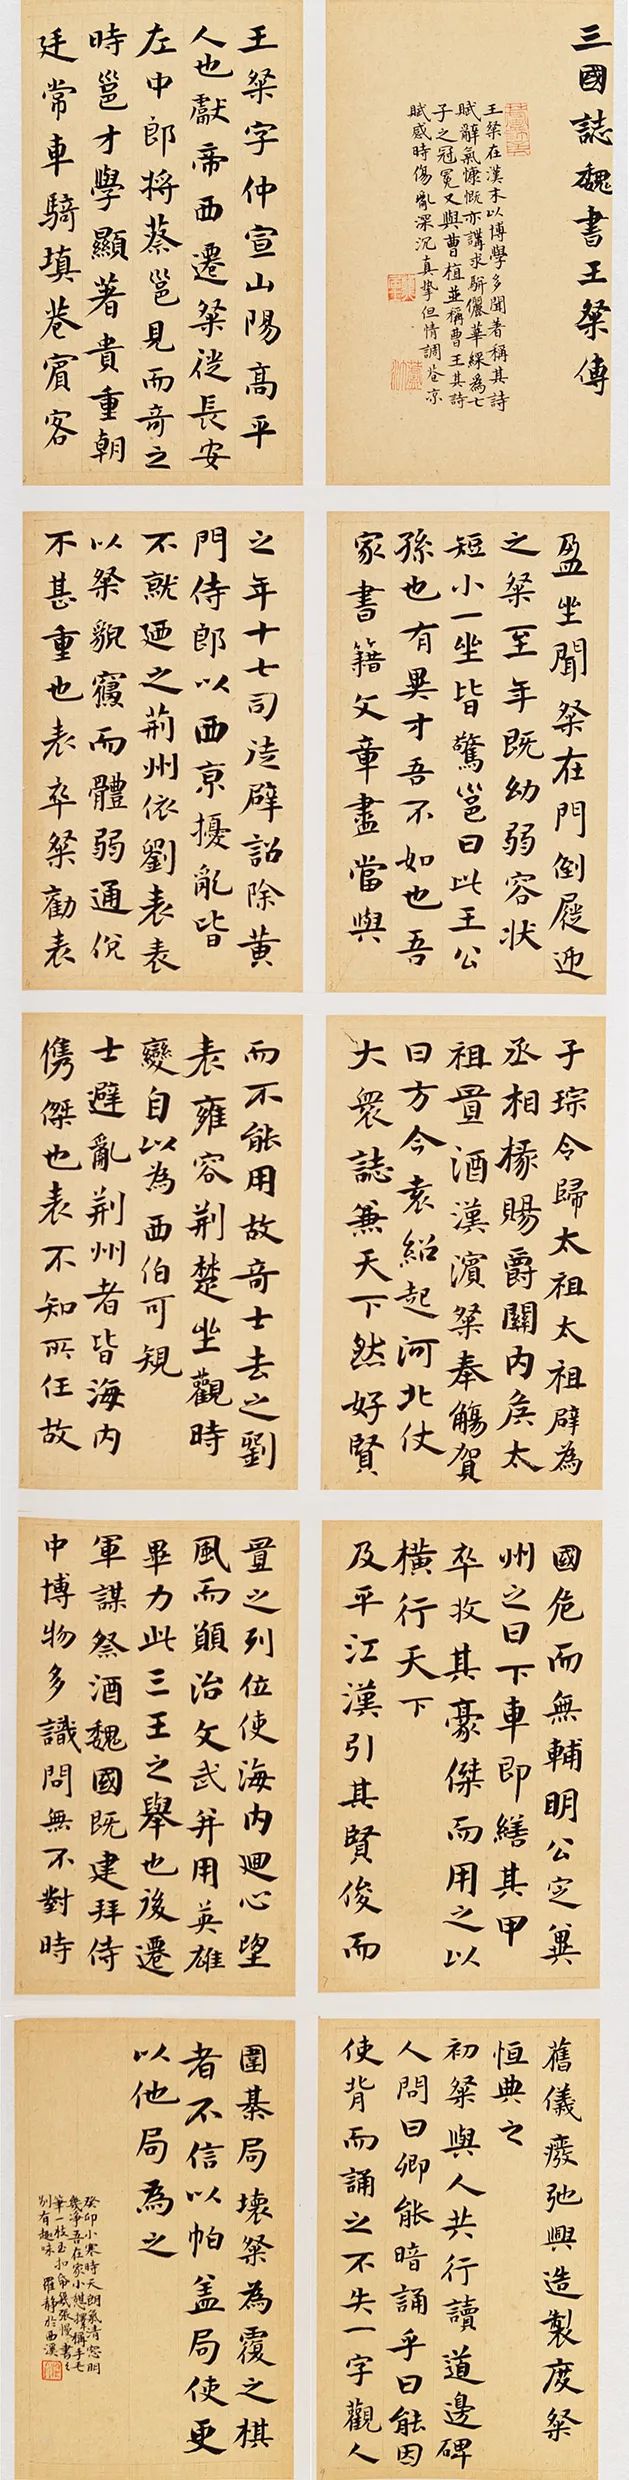 三國誌魏書王粲傳
王粲在漢末以博學多聞者稱其詩
賦辭氣慷慨亦講求駢儷華綵為七
子之冠冕又與曹植並稱曹王其詩
賦感時傷亂深沉真摯但情調蒼涼
王粲字仲宣山陽高平
人也獻帝西遷粲從長安
左中郎將蔡邕見而奇之
時邕才學顯著貴重朝
廷常車騎填巷賓客
盈坐聞粲在門倒屣迎
之粲至年既幼弱容狀
短小一坐皆驚邕曰此王公
孫也有異才吾不如也吾
家書籍文章盡當與
之年十七司徒辟詔除黃
門侍郎以西京擾亂皆
不就廼之荊州依劉表表
以粲貌寢而體弱通侻
不甚重也表卒粲勸表
子琮令歸太祖太祖辟為
丞相掾賜爵關內侯太
祖置酒漢濱粲奉觴賀
曰方今袁紹起河北仗
大眾誌兼天下然好賢
而不能用故奇士去之劉
表雍容荊楚坐觀時
變自以為西伯可規
士避亂荊州者皆海內
儁傑也表不知所任故
國危而無輔明公定冀
州之日下車即繕其甲
卒收其豪傑而用之以
橫行天下
及平江漢引其賢俊而
置之列位使海內廻心望
風而願治文武并用英雄
畢力此三王之舉也後遷
軍謀祭酒魏國既建拜侍
中博物多識問無不對時
舊儀廢弛興造製度粲
恒典之
初粲與人共行讀道邊碑
人問曰卿能暗誦乎曰能因
使背而誦之不失一字觀人
圍棊局壞粲為覆之棋
者不信以帕盖局使更
以他局為之
癸卯小寒時天朗氣清窓明
幾淨吾在家小憩擇稱手毛
筆一枝玉扣幾張慢書之
別有趣味 羅靜於西溪